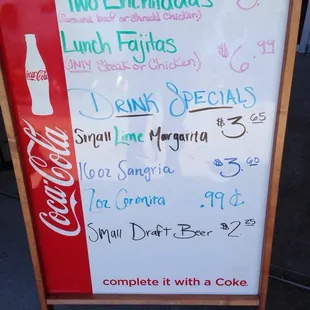 Two Enchiladas
(Ground beef or Shredd Chicken)
Lunch Fajitas
$6.99
(ONLY Steak or Chicken)
Drink Specials
Small Lime Margarita $3.65
16oz Sangria $3.60
7oz Coronita .99¢
Small Draft Beer $2.25
Coca-Cola
Coca-Cola
complete it with a Coke.